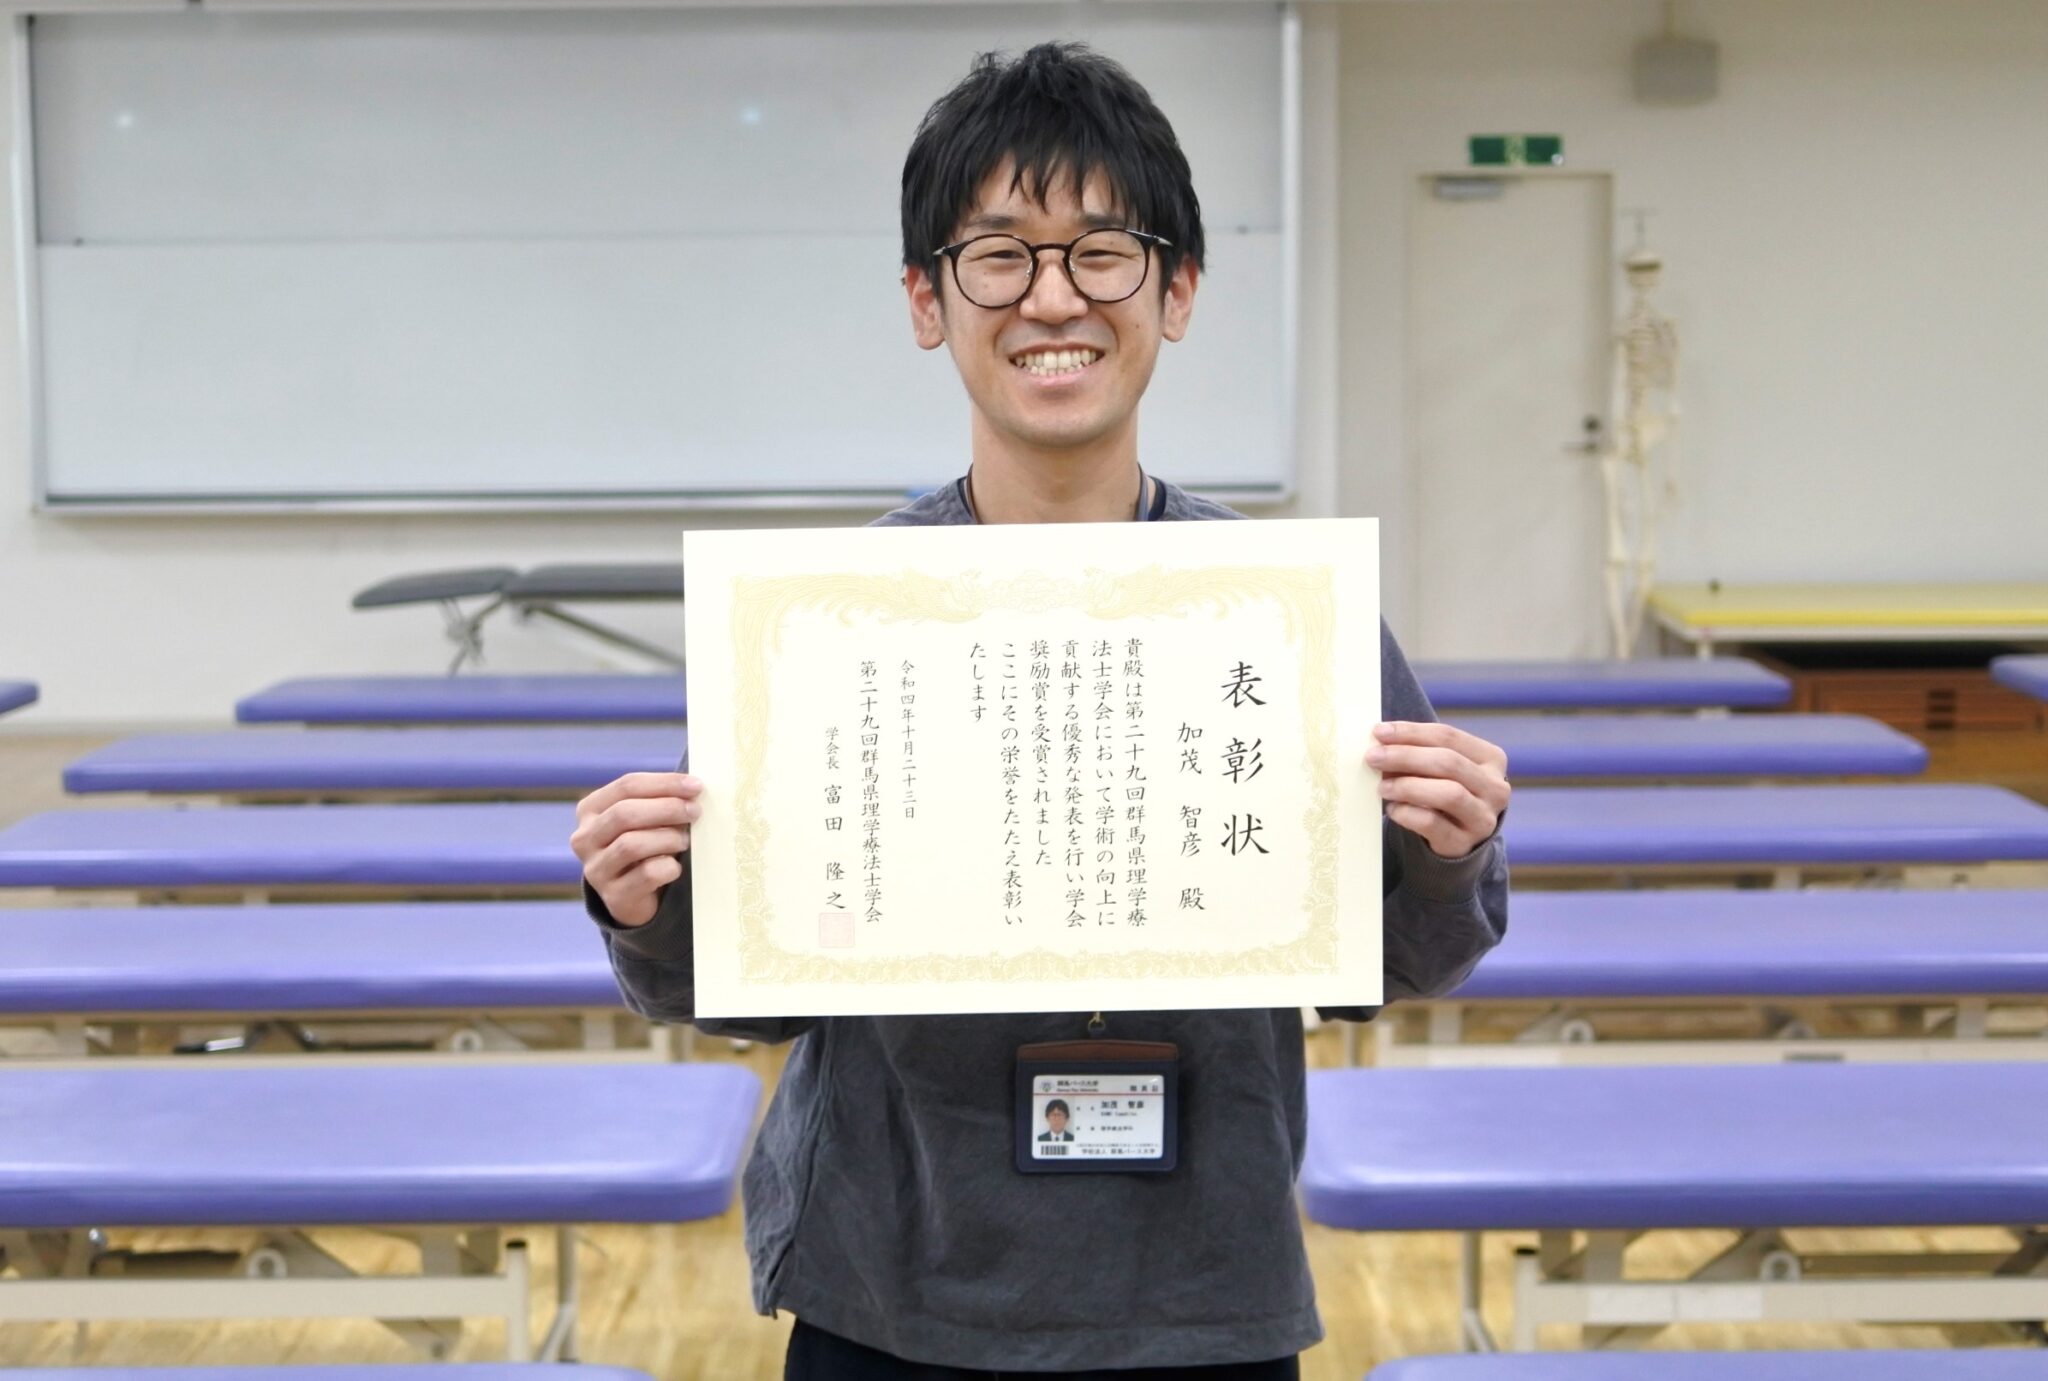 表彰状
加茂 智彦 殿
貴殿は第二十九回群馬県理学療
法士学会において学術の向上に
貢献する優秀な発表を行い学会
奨励賞を受賞されました
ここにその栄誉をたたえ表彰い
たします
令和四年十月二十三日
第二十九回群馬県理学療法士学会
学会長 富田 隆之
群馬パース大学
職員証
加茂 智彦
理学療法学科
学校法人 群馬パース大学